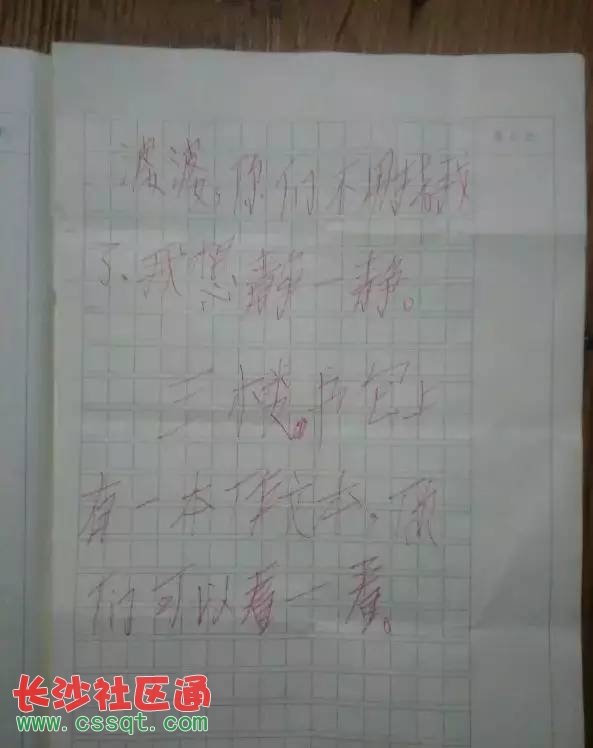 你们不用找我
了、我想静一静。
三楼 上
有一本作文本,你
们可以看一看。
长沙社区通
www.cssqt.com